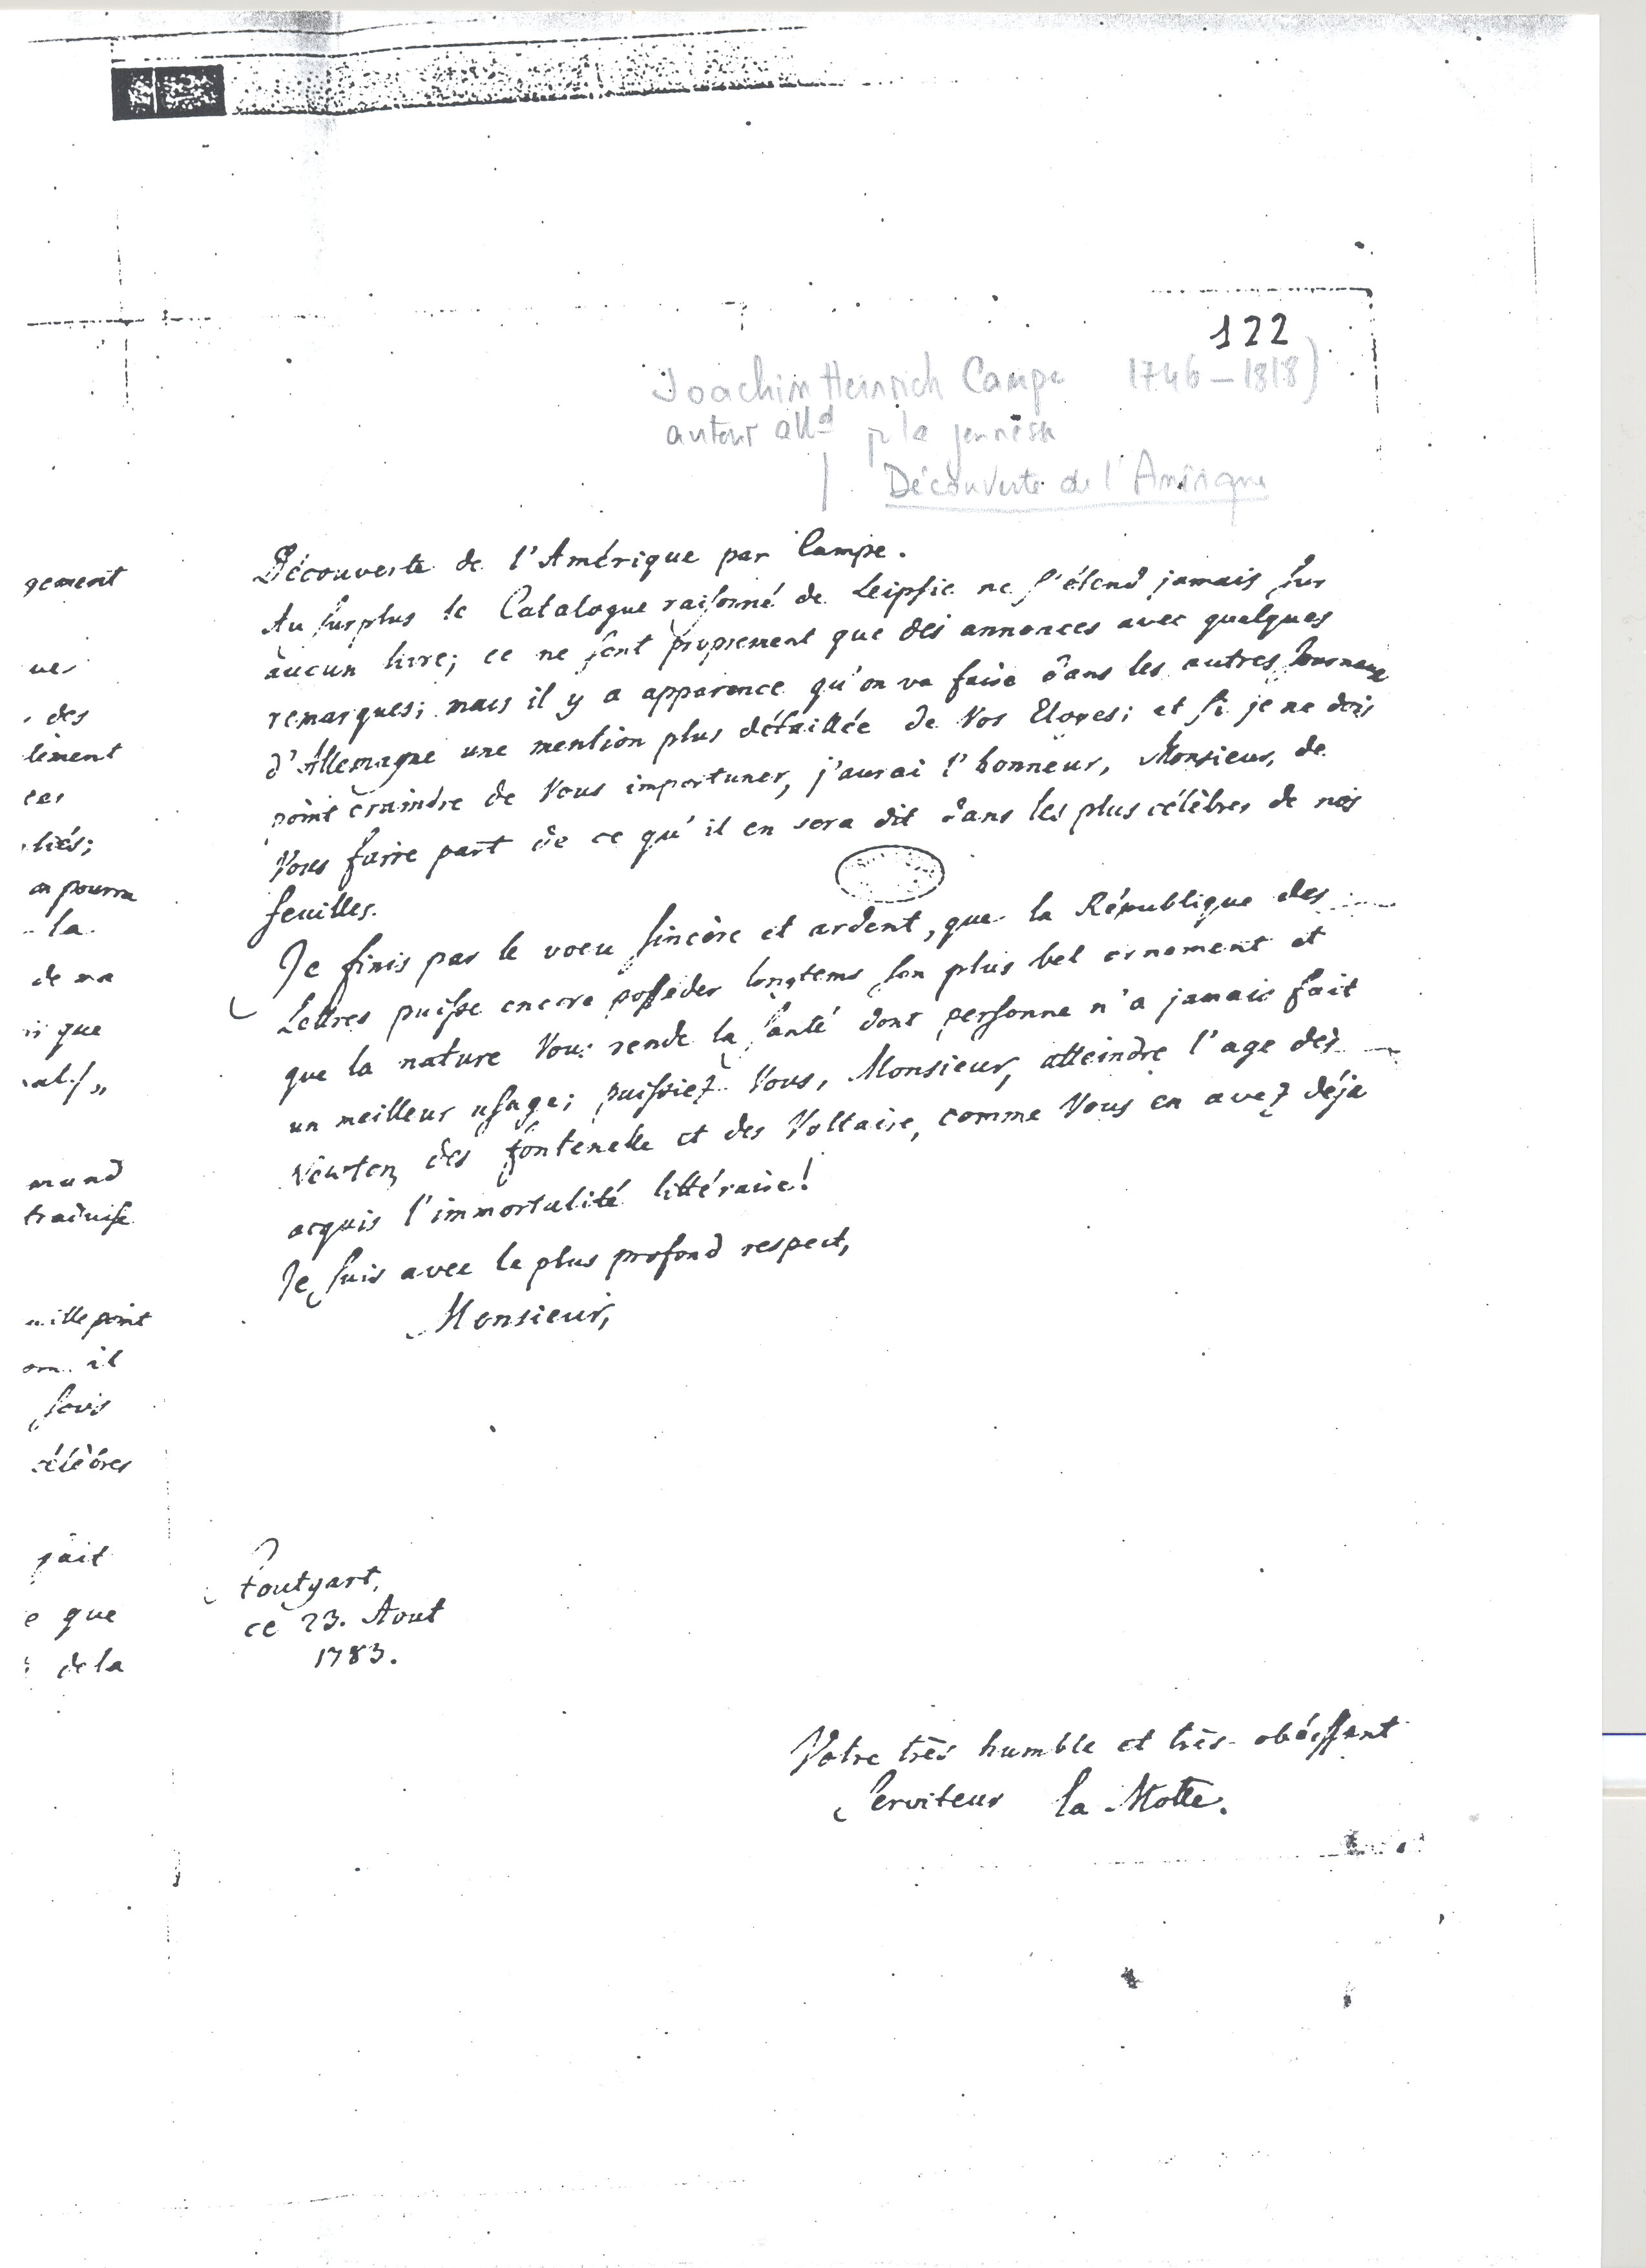 122
Joachim Heinrich Campe 1746-1818)
auteur alld p la jeunesse
Découverte de l'Amérique
Découverte de l'Amérique par Campe.
Au surplus le Catalogue raisonné de Leipsic ne s'étend jamais sur
aucun livre; ce ne sont proprement que des annonces avec quelques
remarques; mais il y a apparence qu'on va faire dans les autres Journaux
d'Allemagne une mention plus détaillée de Vos Eloges; et si je ne dois
point craindre de Vous importuner, j'aurai l'honneur, Monsieur, de
Vous faire part de ce qu'il en sera dit dans les plus célèbres de nos
feuilles.
Je finis par le voeu sincère et ardent, que la République des
Lettres puisse encore posseder longtems son plus bel ornement et
que la nature Vous rende la santé dont personne n'a jamais fait
un meilleur usage; puissiez Vous, Monsieur, atteindre l'age des
Newton, des fontenelle et des Voltaire, comme Vous en avez déja
acquis l'immortalité littéraire!
Je suis avec le plus profond respect,
Monsieur,
Stoutgart,
ce 23. Aout
1783.
Votre très humble et très-obéissant
Serviteur la Motte.
gement
des
lement
liés;
pourra
la
de ma
que
mand
traduise
point
il
sous
célèbres
fait
que
de la